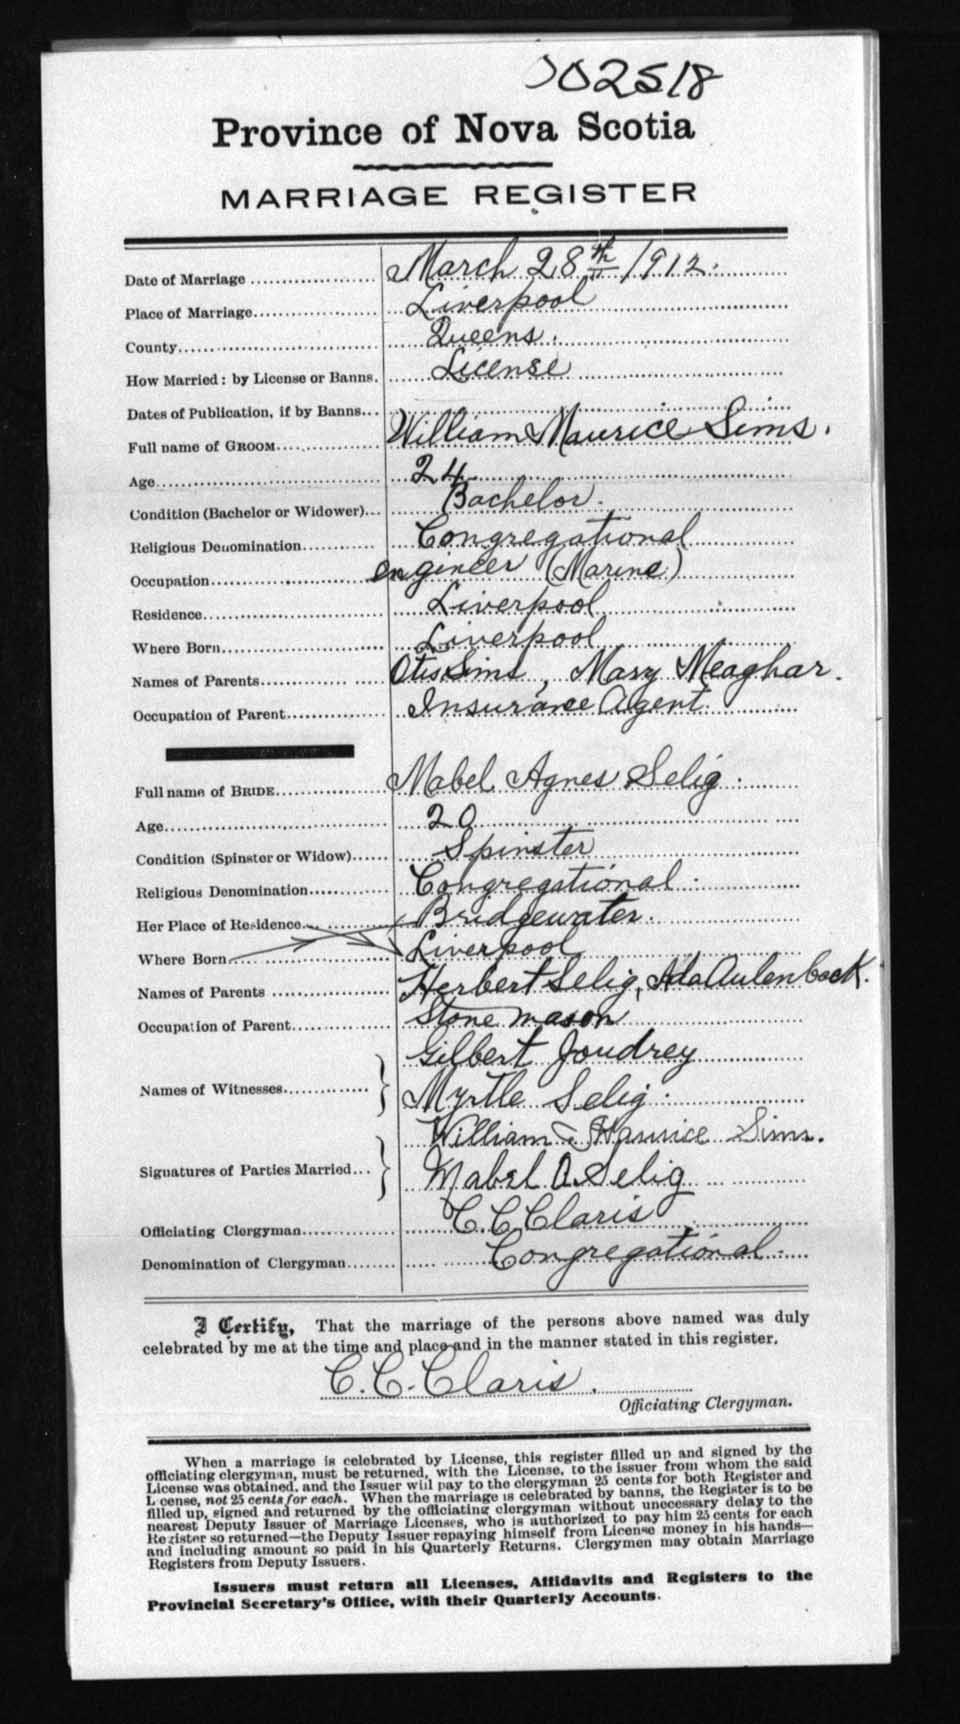 002518
Province of Nova Scotia
MARRIAGE REGISTER
Date of Marriage March 28th 1912.
Place of Marriage Liverpool
County Queens.
How Married: by License or Banns. License
Dates of Publication, if by Banns...
Full name of GROOM William Maurice Sims.
Age 24
Condition (Bachelor or Widower)... Bachelor.
Religious Denomination Congregational
Occupation engineer (Marine)
Residence Liverpool
Where Born Liverpool
Names of Parents Otis Sims, Mary Meaghar.
Occupation of Parent Insurance Agent.
Full name of BRIDE Mabel Agnes Selig.
Age 20
Condition (Spinster or Widow) Spinster
Religious Denomination Congregational.
Her Place of Residence Bridgewater.
Where Born Liverpool
Names of Parents Herbert Selig, Ada Aulenback.
Occupation of Parent Stone mason
Gilbert Joudrey
Names of Witnesses
Myrtle Selig.
William Maurice Sims.
Signatures of Parties Married...
Mabel A. Selig
Officiating Clergyman C. C. Claris
Denomination of Clergyman Congregational.
I Certify, That the marriage of the persons above named was duly
celebrated by me at the time and place and in the manner stated in this register.
C. C. Claris.
Officiating Clergyman.
When a marriage is celebrated by License, this register filled up and signed by the
officiating clergyman, must be returned, with the License, to the issuer from whom the said
License was obtained, and the Issuer will pay to the clergyman 25 cents for both Register and
License, not 25 cents for each. When the marriage is celebrated by banns, the Register is to be
filled up, signed and returned by the officiating clergyman without unnecessary delay to the
nearest Deputy Issuer of Marriage Licenses, who is authorized to pay him 25 cents for each
Register so returned—the Deputy Issuer repaying himself from License money in his hands—
and including amount so paid in his Quarterly Returns. Clergymen may obtain Marriage
Registers from Deputy Issuers.
Issuers must return all Licenses, Affidavits and Registers to the
Provincial Secretary's Office, with their Quarterly Accounts.